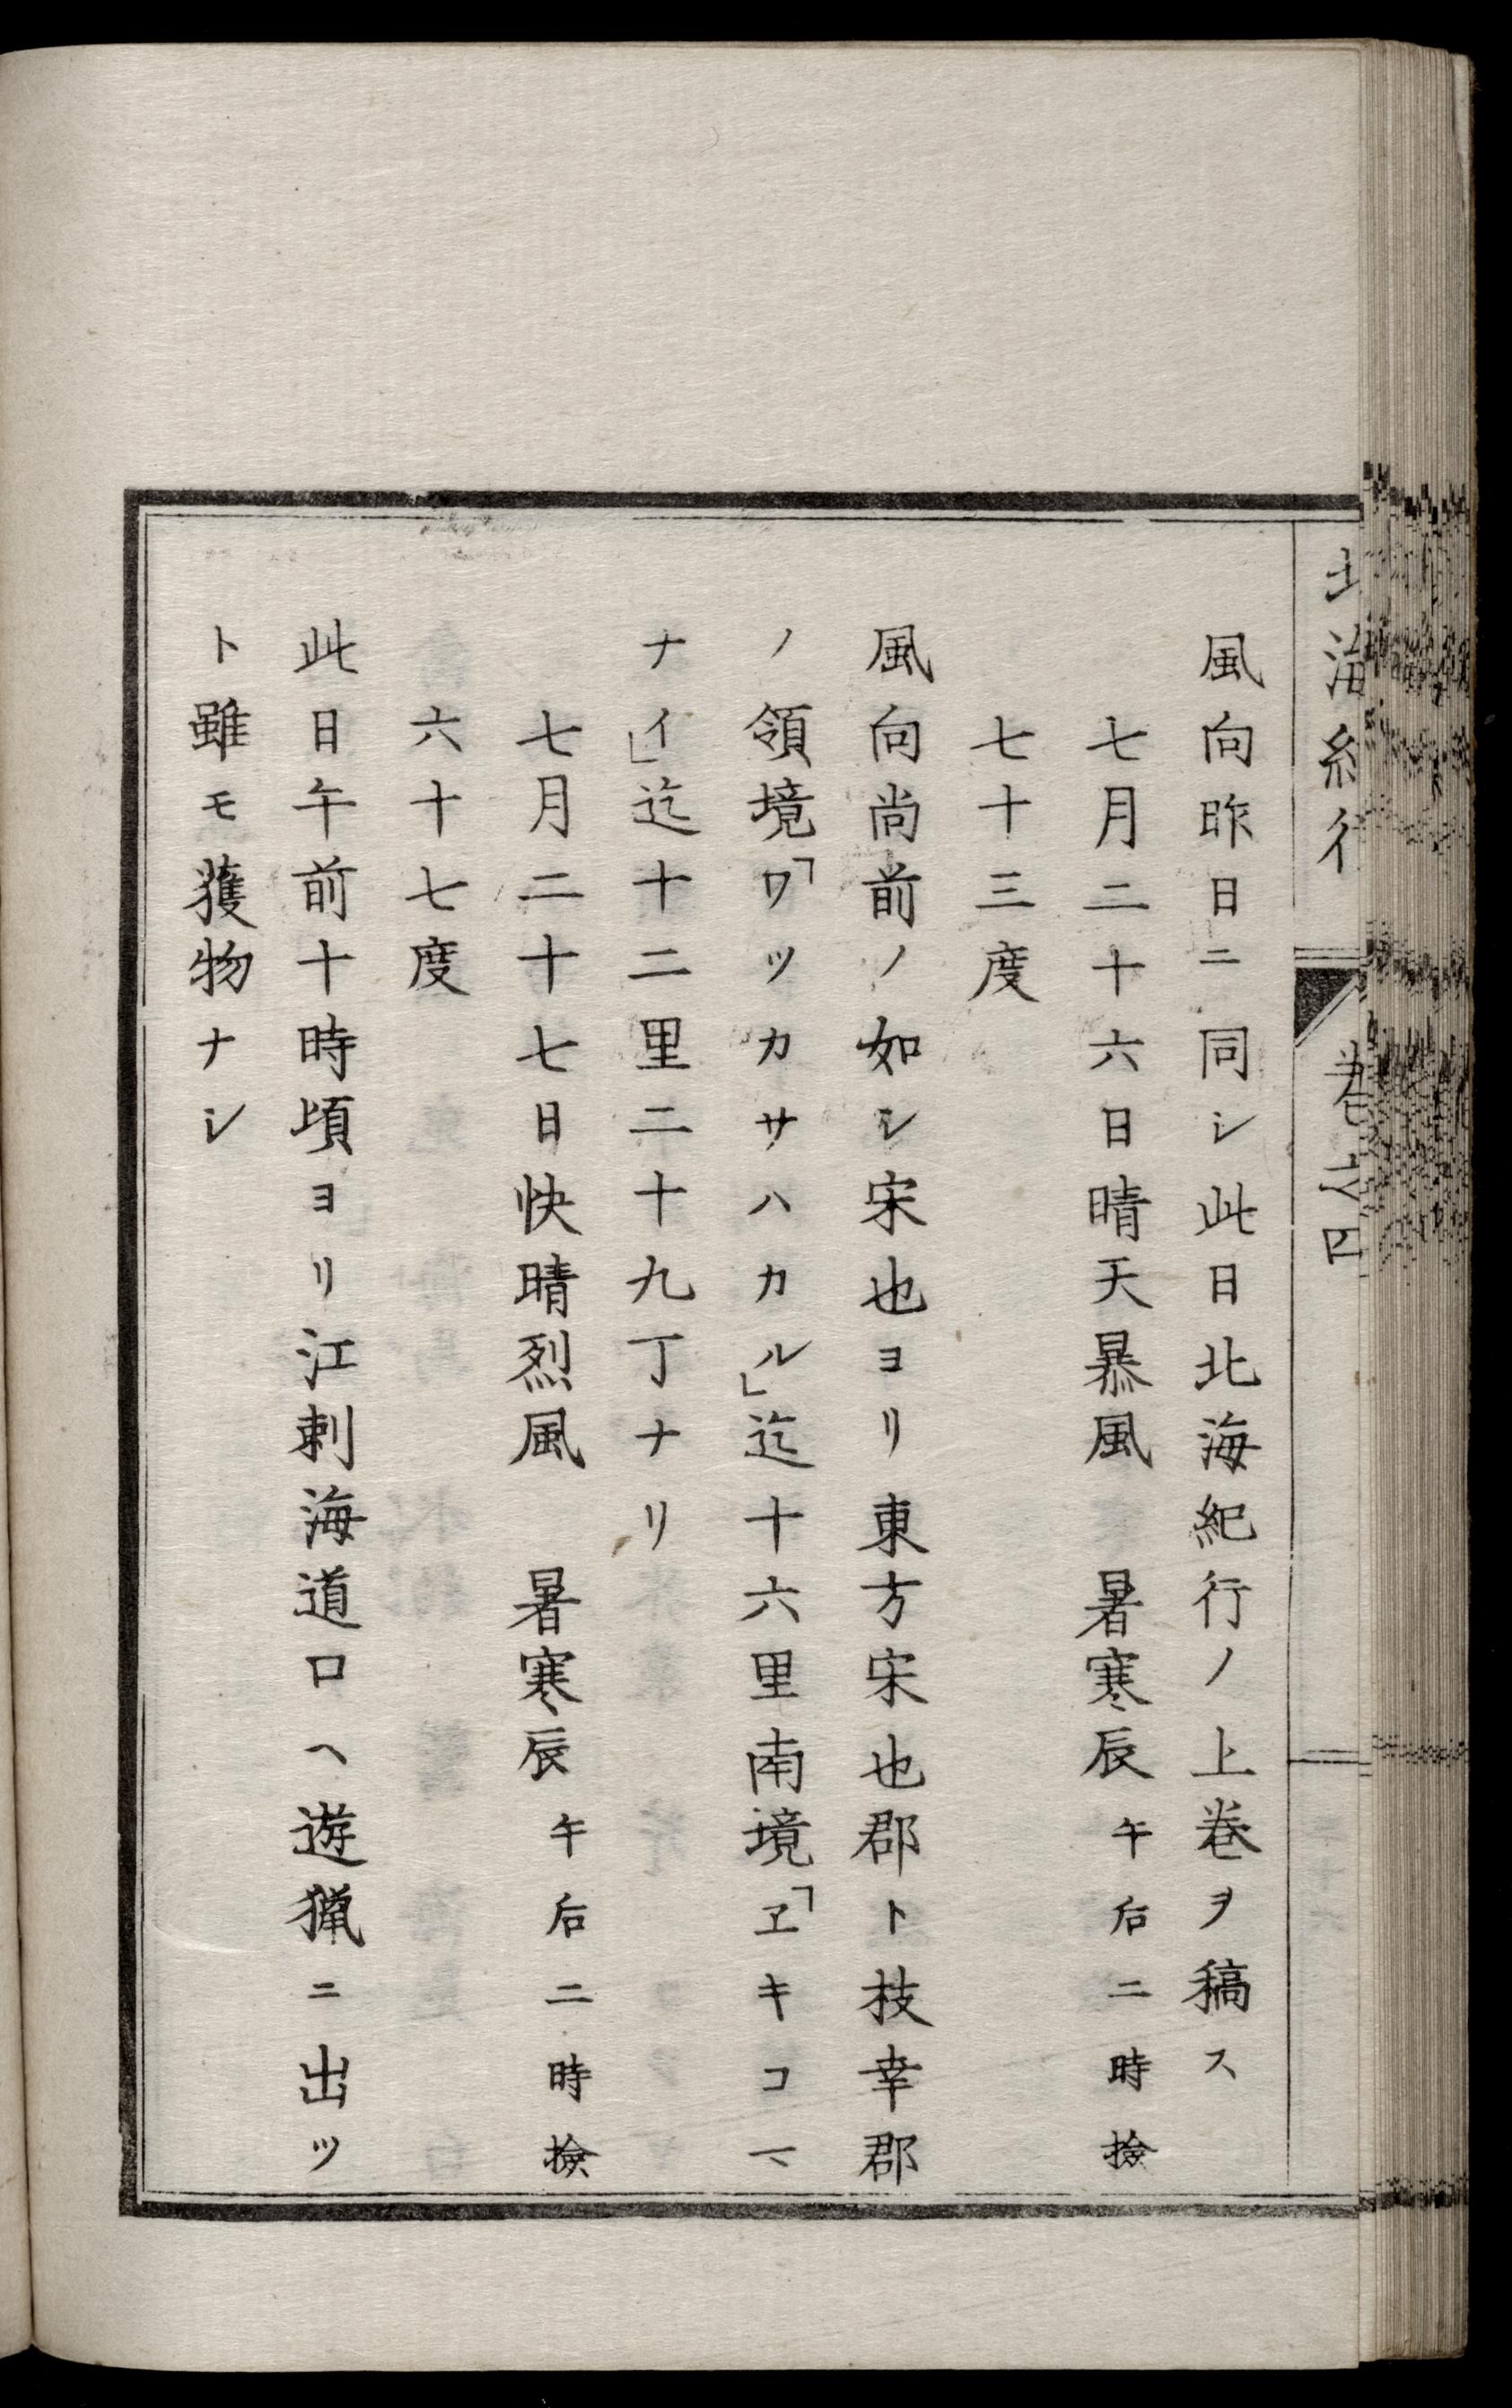 北海紀行 卷之四
風向昨日ニ同シ此日北海紀行ノ上巻ヲ稿ス
七月二十六日晴天暴風 暑寒辰午后二時撿
七十三度
風向尚前ノ如シ宋也ヨリ東方宋也郡ト枝幸郡
ノ領境「ワツカサハカル」迄十六里南境「ヱキコマ
ナイ」迄十二里二十九丁ナリ
七月二十七日快晴烈風 暑寒辰午后二時撿
六十七度
此日午前十時頃ヨリ江刺海道口ヘ遊猟ニ出ツ
ト雖モ獲物ナシ